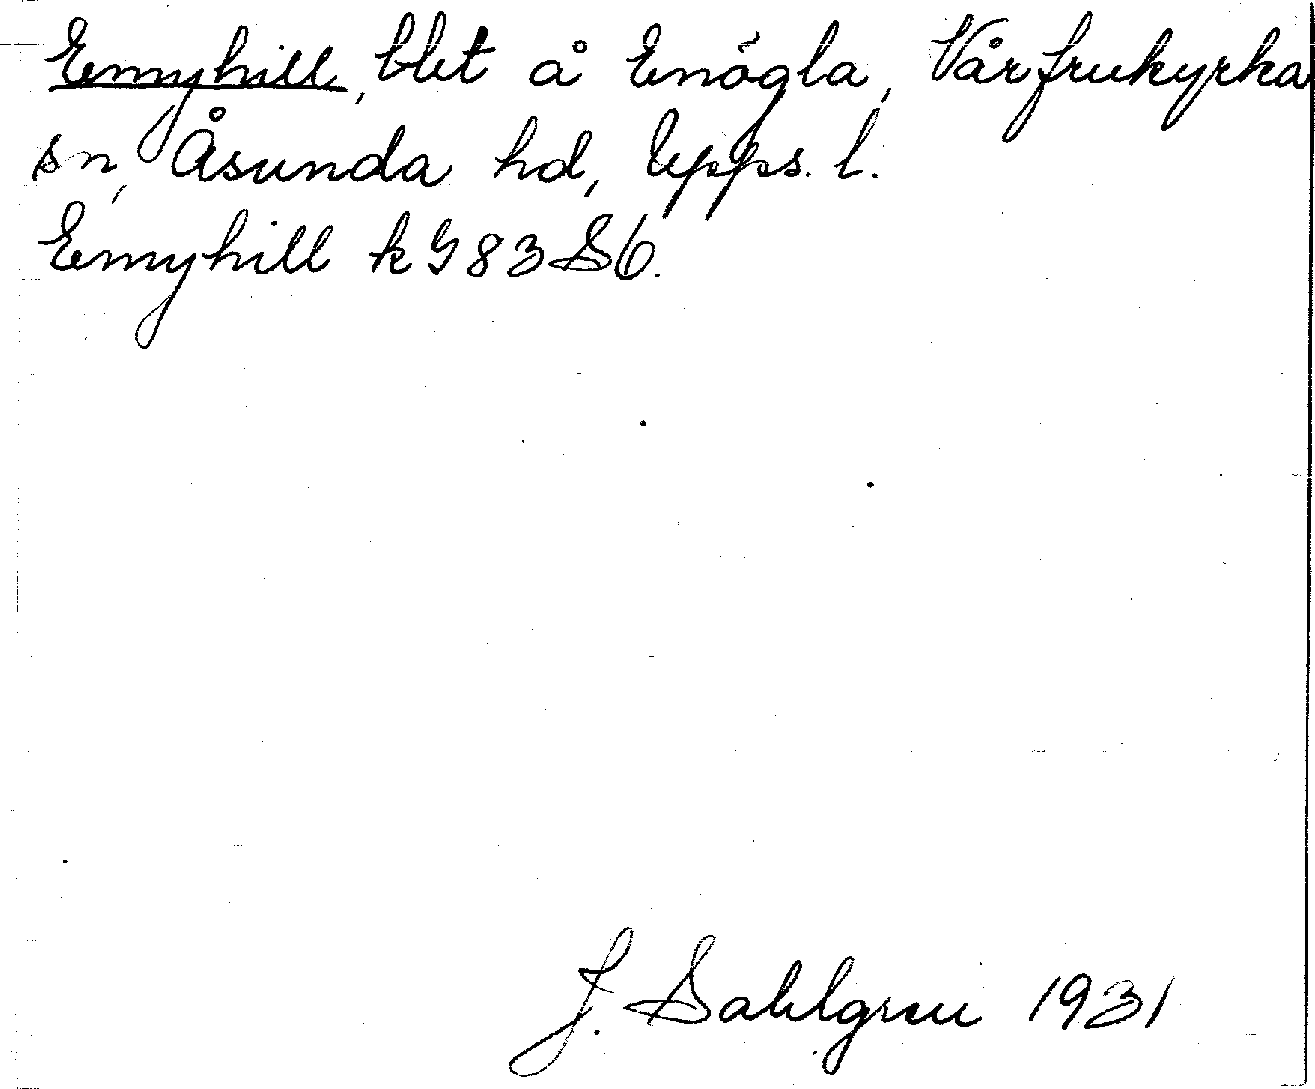 Emyhill, blt å Enögla, Vårfrukyrka
sn, Åsunda hd, Upps. l.
Emyhill k G 83 S 6.
J. Sahlgren 1931